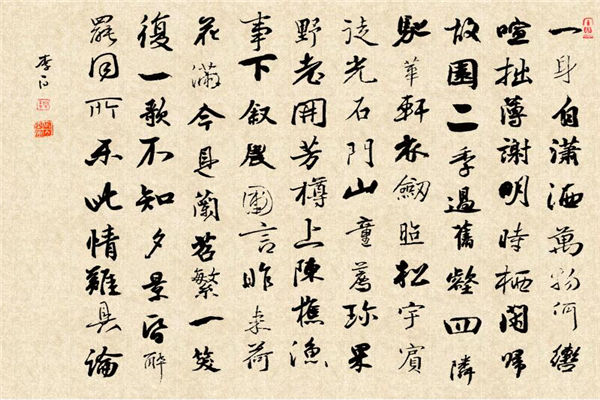 一身自瀟洒萬物何囂
喧拙薄謝明時栖閑歸
故園二季過舊壑四隣
馳華軒衣劍照松宇賓
徒光石門山童薦珍果
野老開芳樽上陳樵漁
事下叙農圃言昨來荷
花滿今見蘭苕繁一笑
復一歌不知夕景昏醉
罷同所樂此情難具論
李白